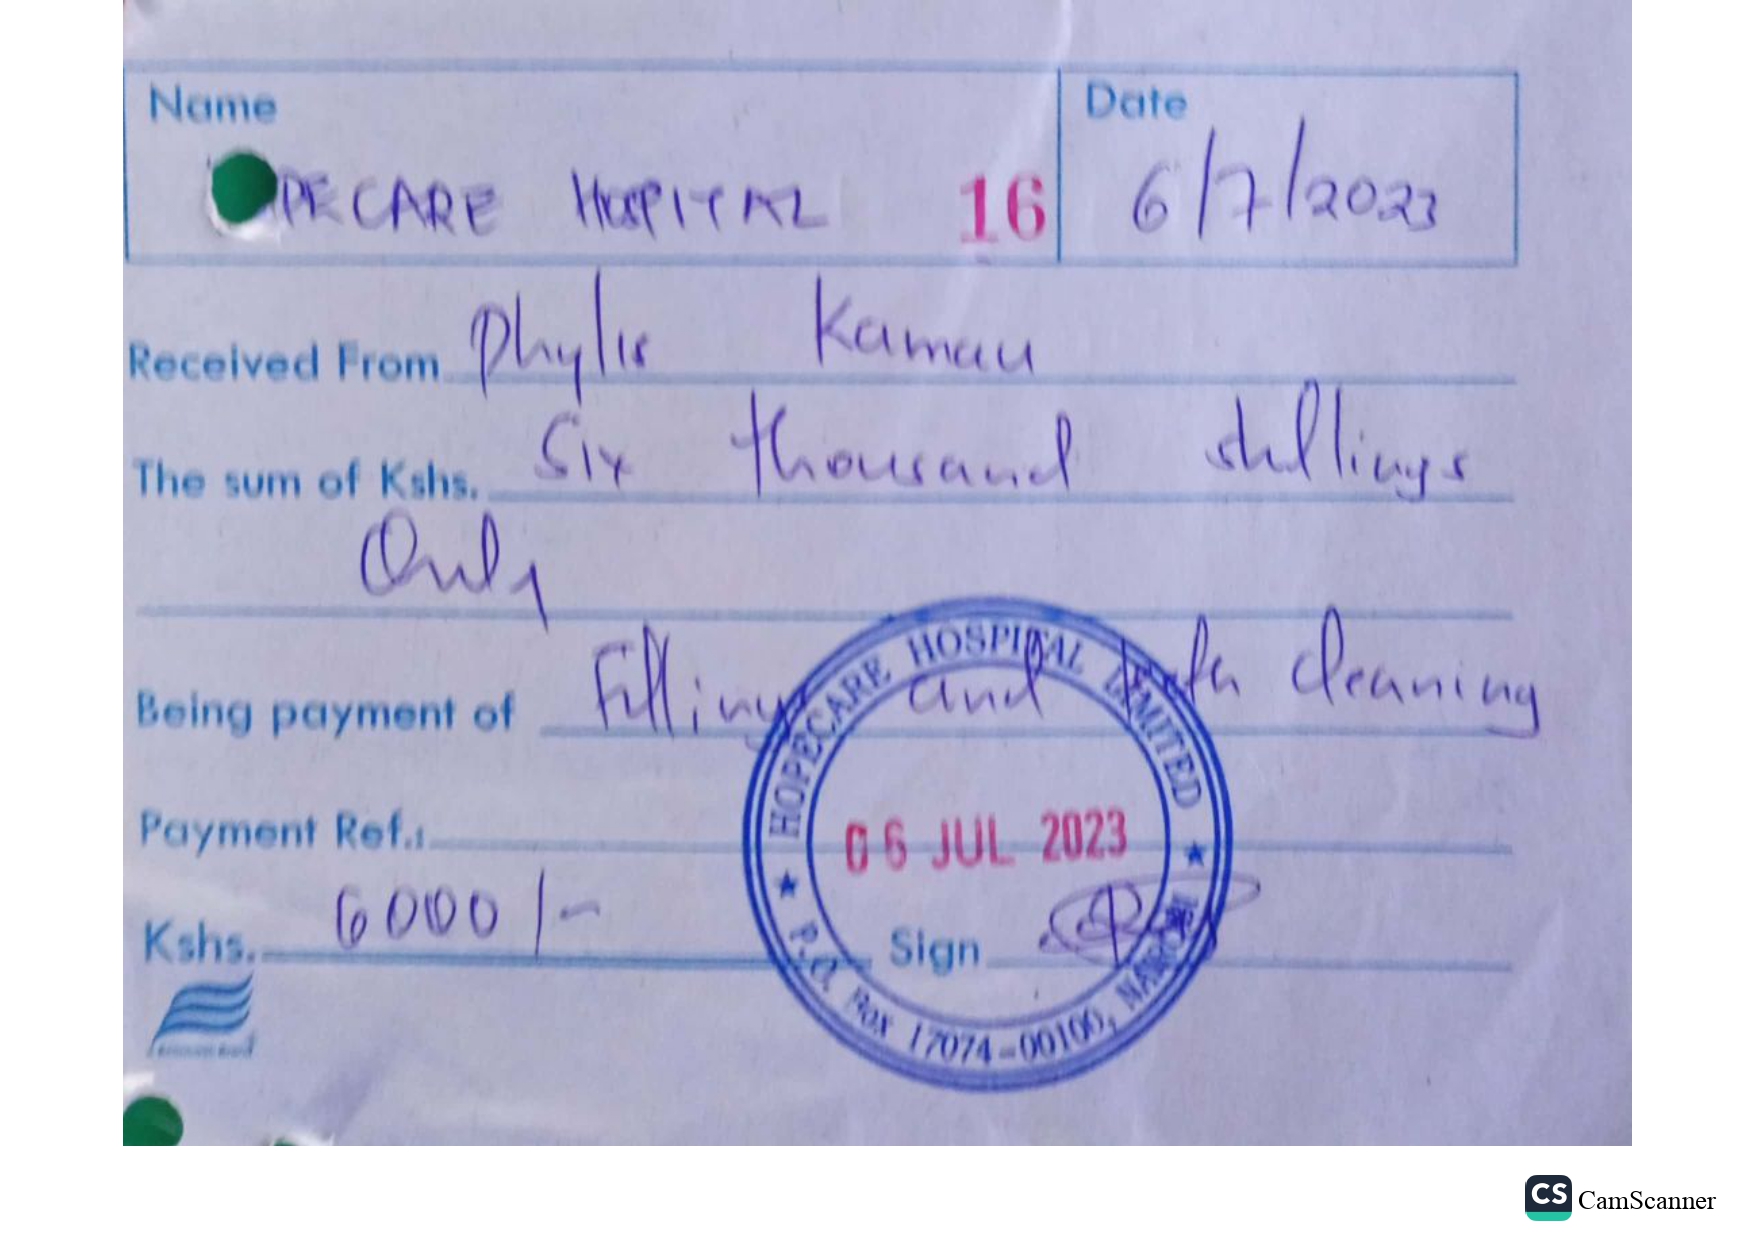 Name
Date
PECARE HOSPITAL 16
6/7/2023
Received From Phylis Kamau
The sum of Kshs. Six thousand shillings
Only
Being payment of Filling and teeth cleaning
HOPECARE HOSPITAL LIMITED
Payment Ref.:
06 JUL 2023
Kshs. 6000/-
Sign
P.O. Box 17074-00100, NAIROBI
CS CamScanner